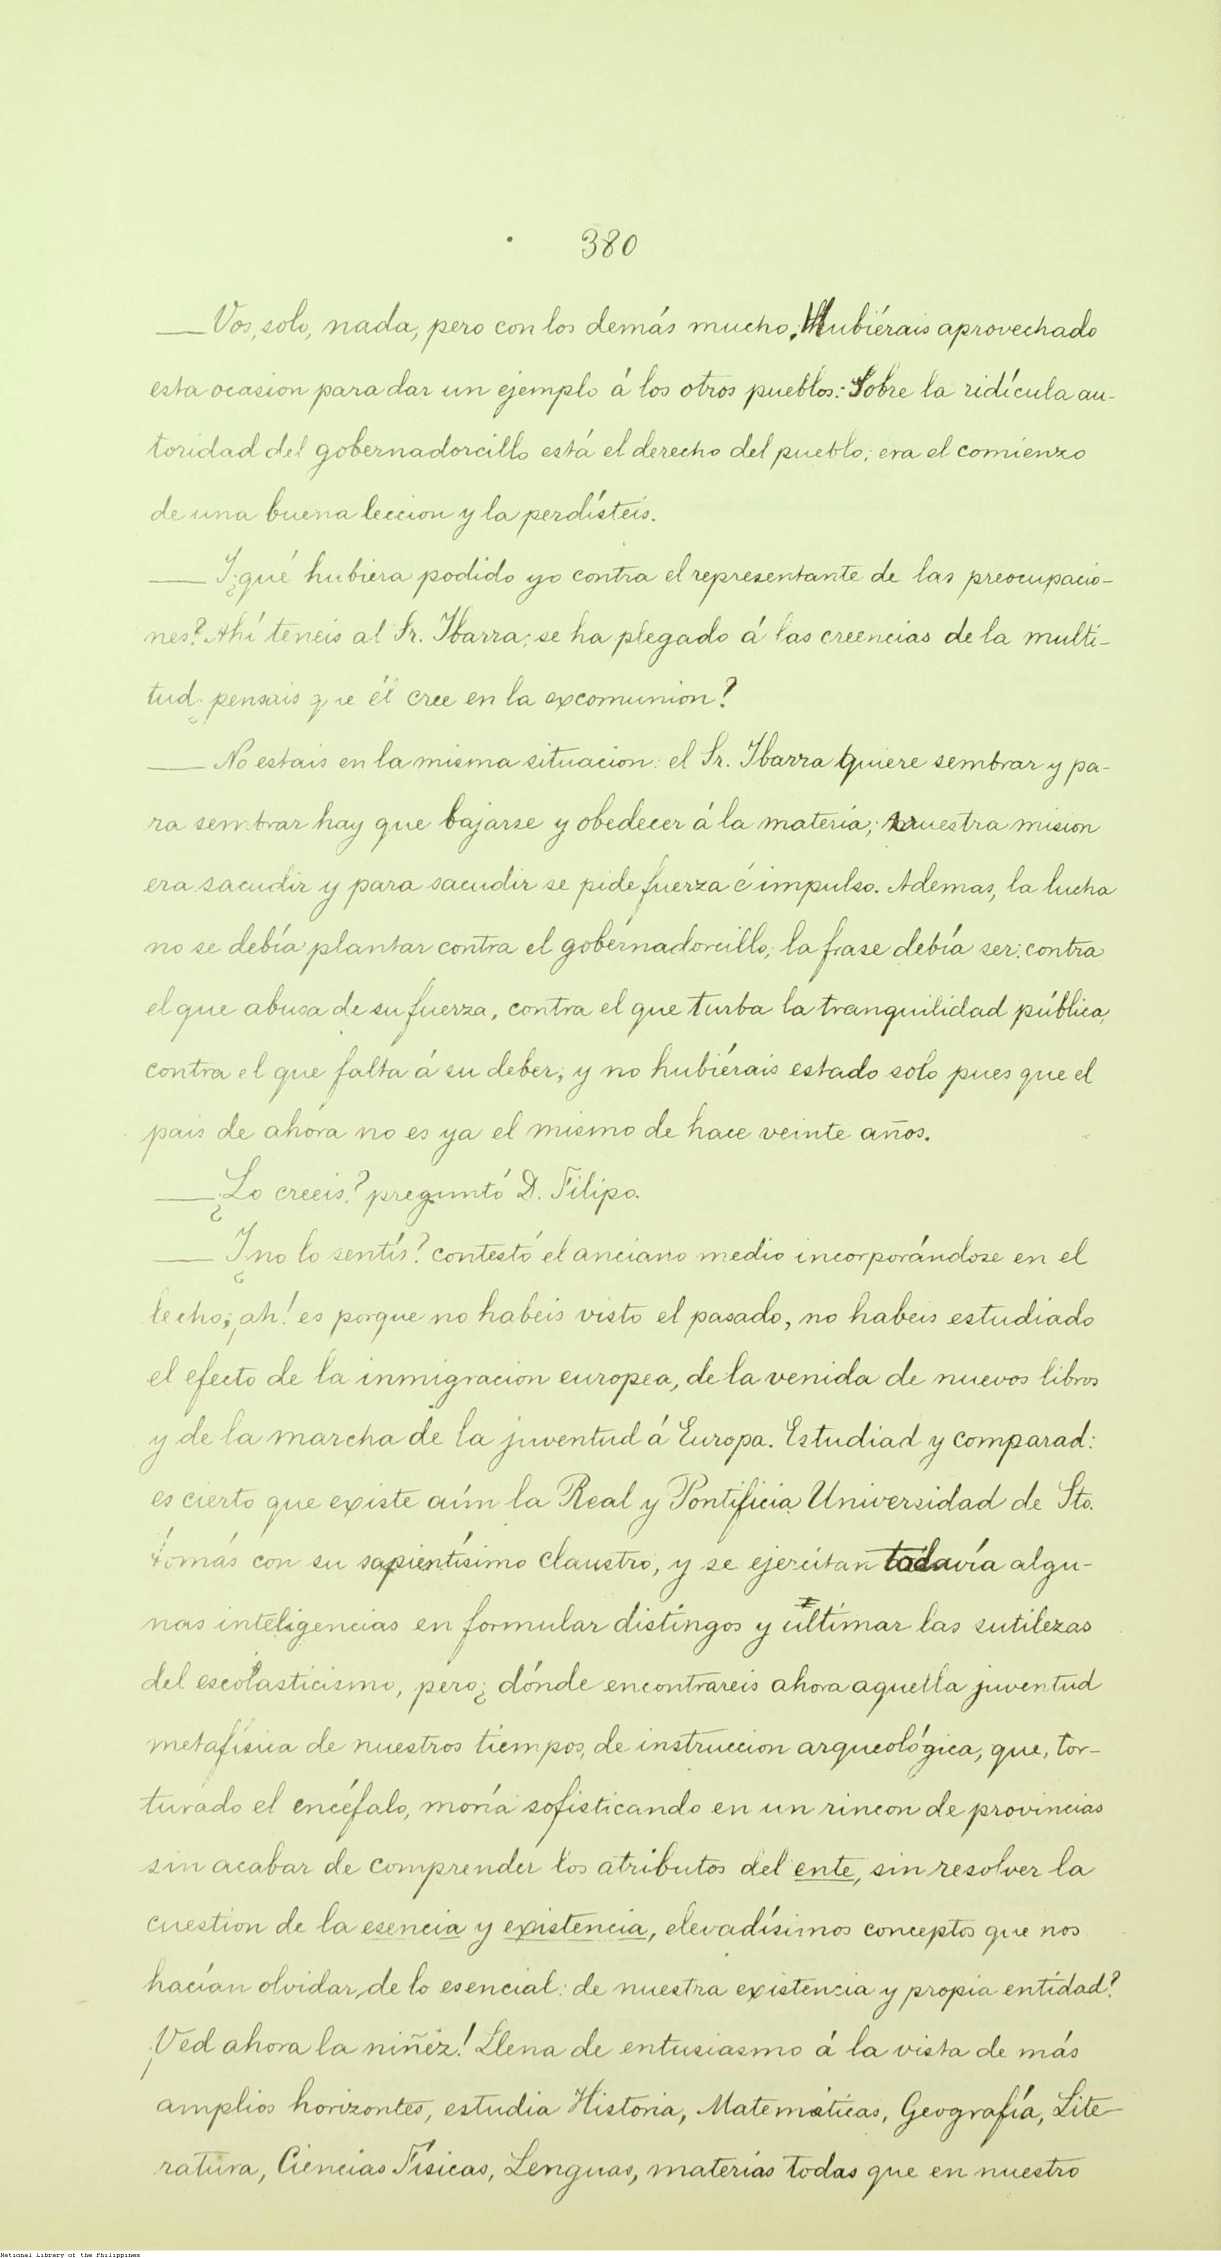 380
— Vos, solo, nada, pero con los demás mucho. Hubiérais aprovechado
esta ocasion para dar un ejemplo á los otros pueblos: Sobre la ridícula au-
toridad del gobernadorcillo está el derecho del pueblo; era el comienzo
de una buena leccion y la perdísteis.
— Y ¿qué hubiera podido yo contra el representante de las preocupacio-
nes? Ahí teneis al Sr. Ibarra; se ha plegado á las creencias de la multi-
tud; ¿pensais que él cree en la excomunion?
— No estais en la misma situacion: el Sr. Ibarra quiere sembrar y pa-
ra sembrar hay que bajarse y obedecer á la materia; nuestra mision
era sacudir y para sacudir se pide fuerza é impulso. Ademas, la lucha
no se debía plantar contra el gobernadorcillo; la frase debía ser: contra
el que abusa de su fuerza, contra el que turba la tranquilidad pública,
contra el que falta á su deber; y no hubiérais estado solo pues que el
pais de ahora no es ya el mismo de hace veinte años.
— ¿Lo creeis? preguntó D. Filipo.
— Y ¿no lo sentís? contestó el anciano medio incorporándose en el
lecho; ¡ah! es porque no habeis visto el pasado, no habeis estudiado
el efecto de la inmigracion europea, de la venida de nuevos libros
y de la marcha de la juventud á Europa. Estudiad y comparad:
es cierto que existe aún la Real y Pontificia Universidad de Sto.
Tomás con su sapientísimo claustro, y se ejercitan todavía algu-
nas inteligencias en formular distingos y ultimar las sutilezas
del escolasticismo, pero ¿dónde encontrareis ahora aquella juventud
metafísica de nuestros tiempos, de instruccion arqueológica, que, tor-
turado el encéfalo, moría sofisticando en un rincon de provincias
sin acabar de comprender los atributos del ente, sin resolver la
cuestion de la esencia y existencia, elevadísimos conceptos que nos
hacían olvidar de lo esencial: de nuestra existencia y propia entidad?
¡Ved ahora la niñez! Llena de entusiasmo á la vista de más
amplios horizontes, estudia Historia, Matemáticas, Geografía, Lite-
ratura, Ciencias Físicas, Lenguas, materias todas que en nuestro
National Library of the Philippines